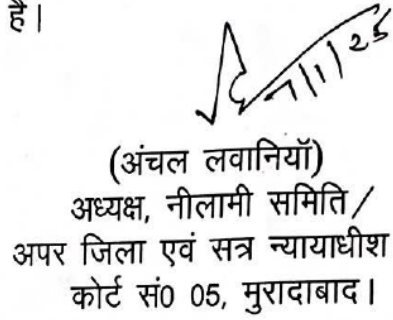 है।
7/1/25
(अंचल लवानियॉ)
अध्यक्ष, नीलामी समिति/
अपर जिला एवं सत्र न्यायाधीश
कोर्ट सं0 05, मुरादाबाद।